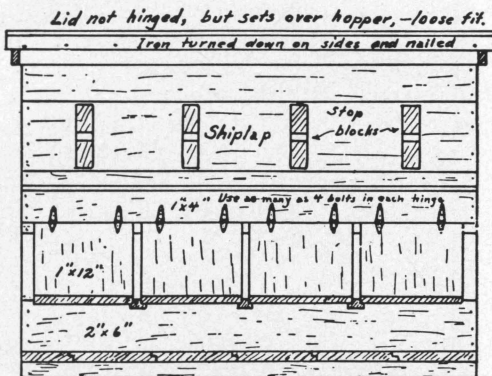 Lid not hinged, but sets over hopper, - loose fit.
Iron turned down on sides and nailed
Shiplap
Stop
blocks
1"x4" Use as many as 4 bolts in each hinge
1"x12"
2"x6"